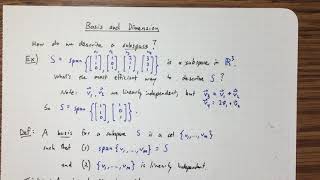 Basis and Dimension
How do we describe a subspace ?
Ex) S = span is a subspace in ℝ³.
What's the most efficient way to describe S ?
Note: v⃗₁, v⃗₂ are linearly independent, but v⃗₃ = v⃗₁ + v⃗₂
So S = span
Def: A basis for a subspace S is a set {v₁,...,vₘ}
such that (1) span {v₁,...,vₘ} = S
and (2) {v₁,...,vₘ} is linearly independent.